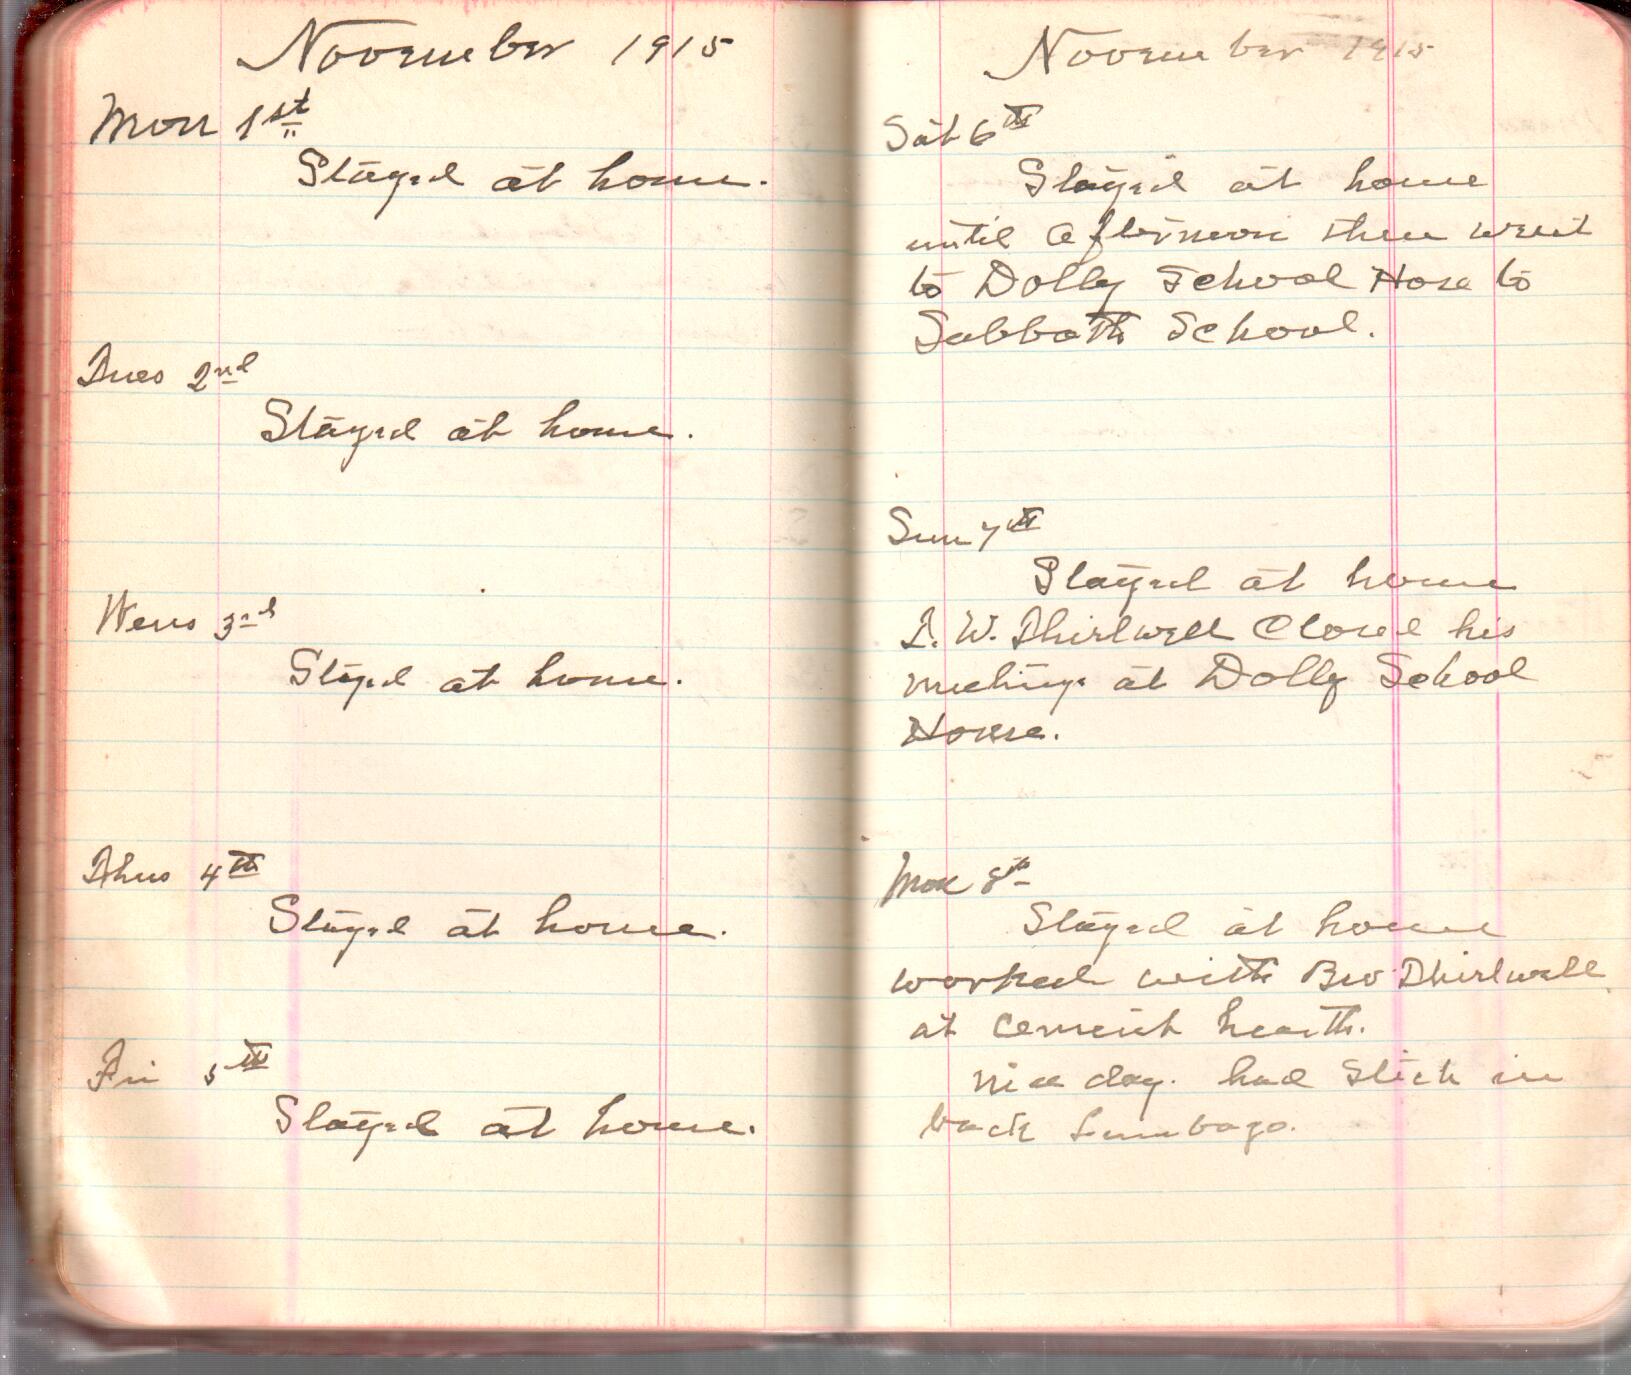 November 1915
Mon 1st
Stayed at home.
Tues 2nd
Stayed at home.
Wens 3rd
Stayed at home.
Thus 4th
Stayed at home.
Fri 5th
Stayed at home.
November 1915
Sat 6th
Stayed at home
until afternoon then went
to Dolly School Hose to
Sabbath School.
Sun 7th
Stayed at home
T. W. Thirlwell Closed his
meetings at Dolly School
House.
Mon 8th
Stayed at home
worked with Bro Thirlwell
at cement hearth.
nice day. had Stich in
back Lumbago.